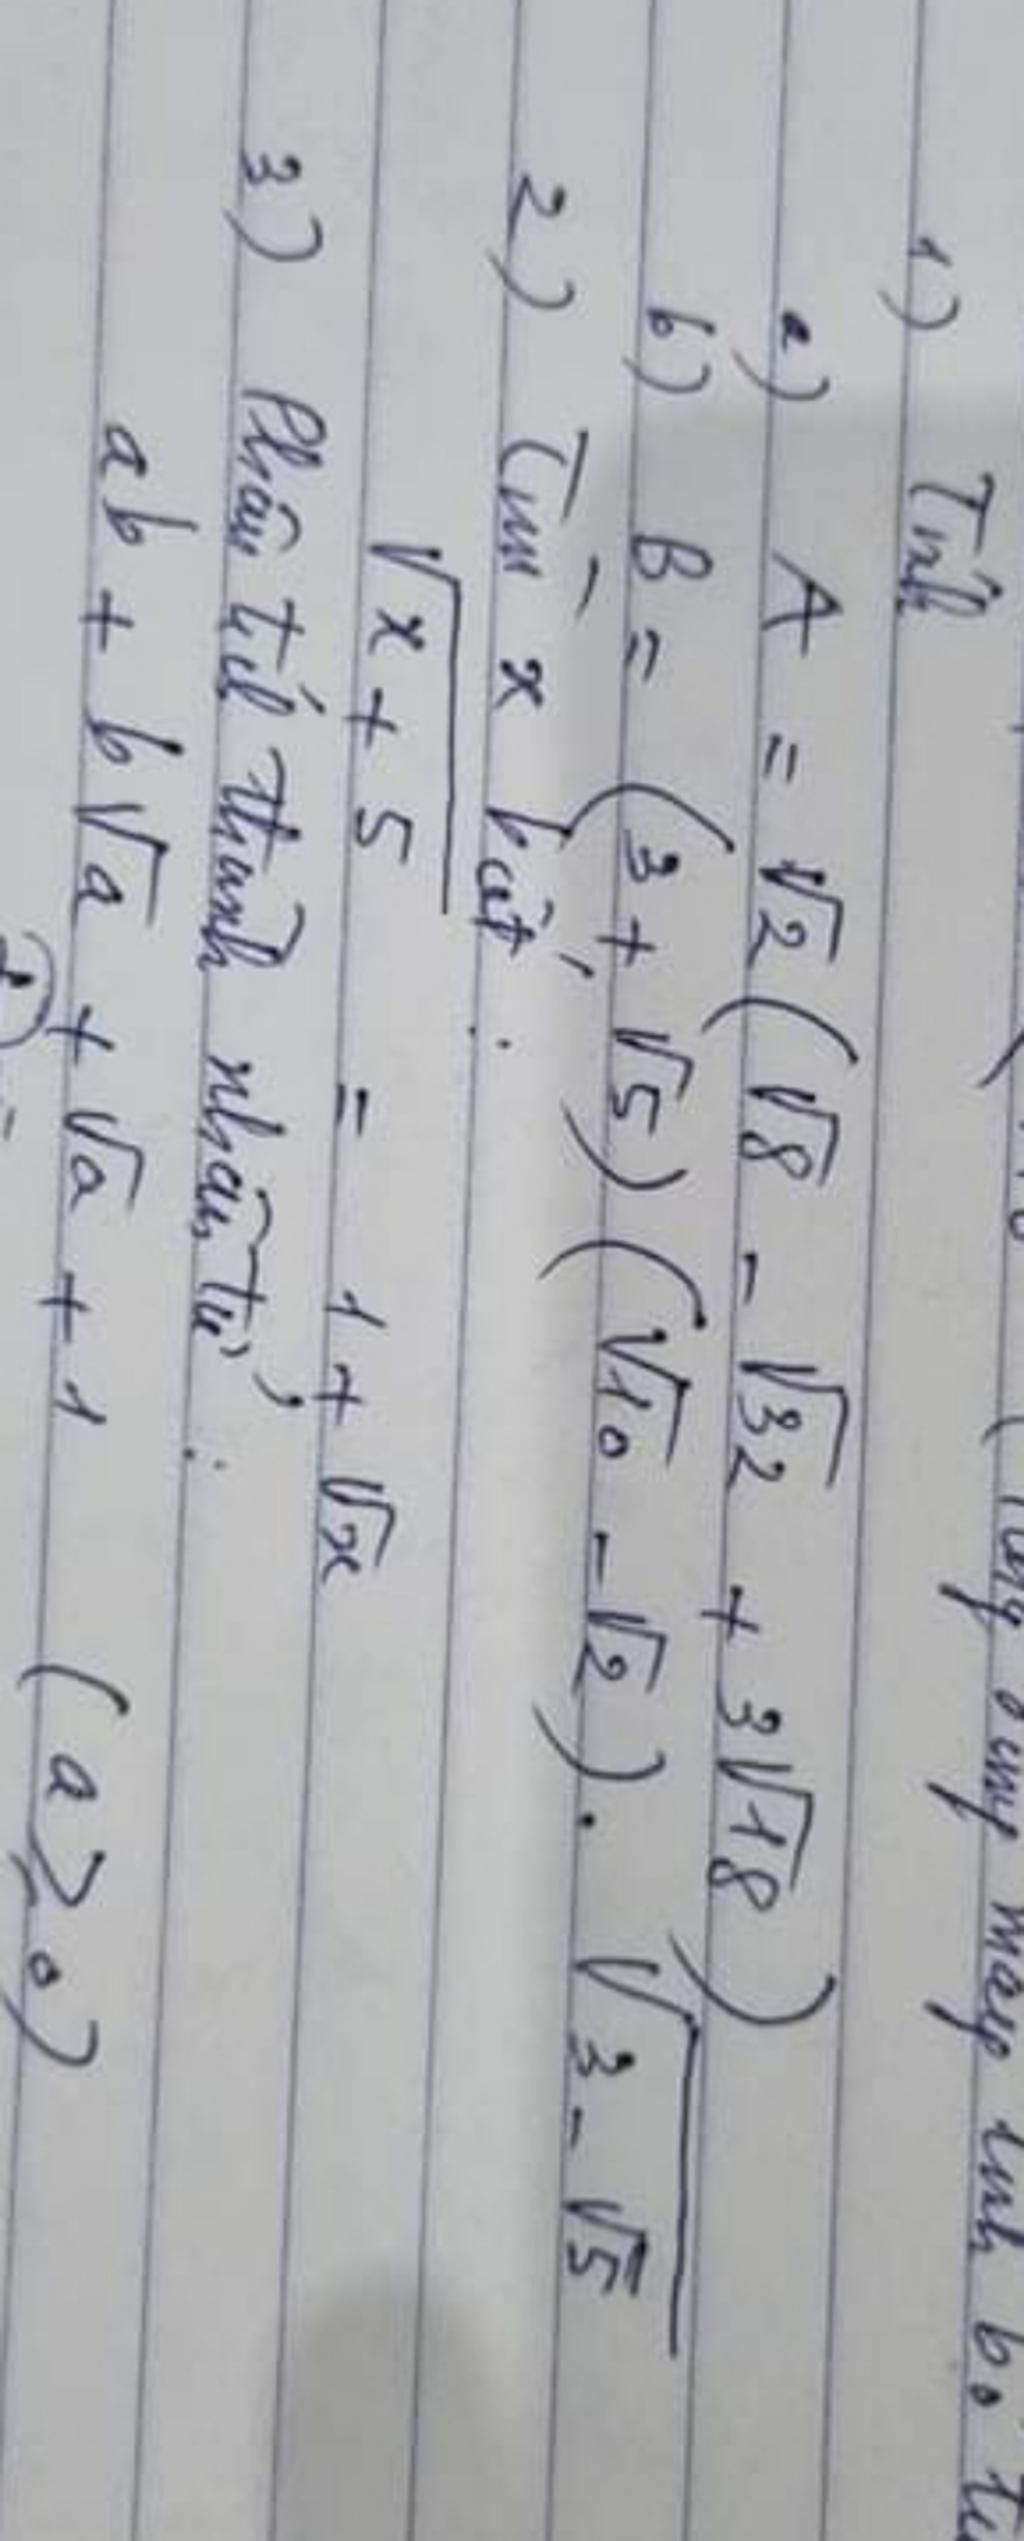 1) Tính
a) A = √2 (√8 - √32 + 3√18)
b) B = (3 + √5) (√10 - √2) . √(3 - √5)
2) Tìm x biết :
√(x + 5) = 1 + √x
3) Phân tử thành nhân tử :
ab + b√a + √a + 1 (a ≥ 0)